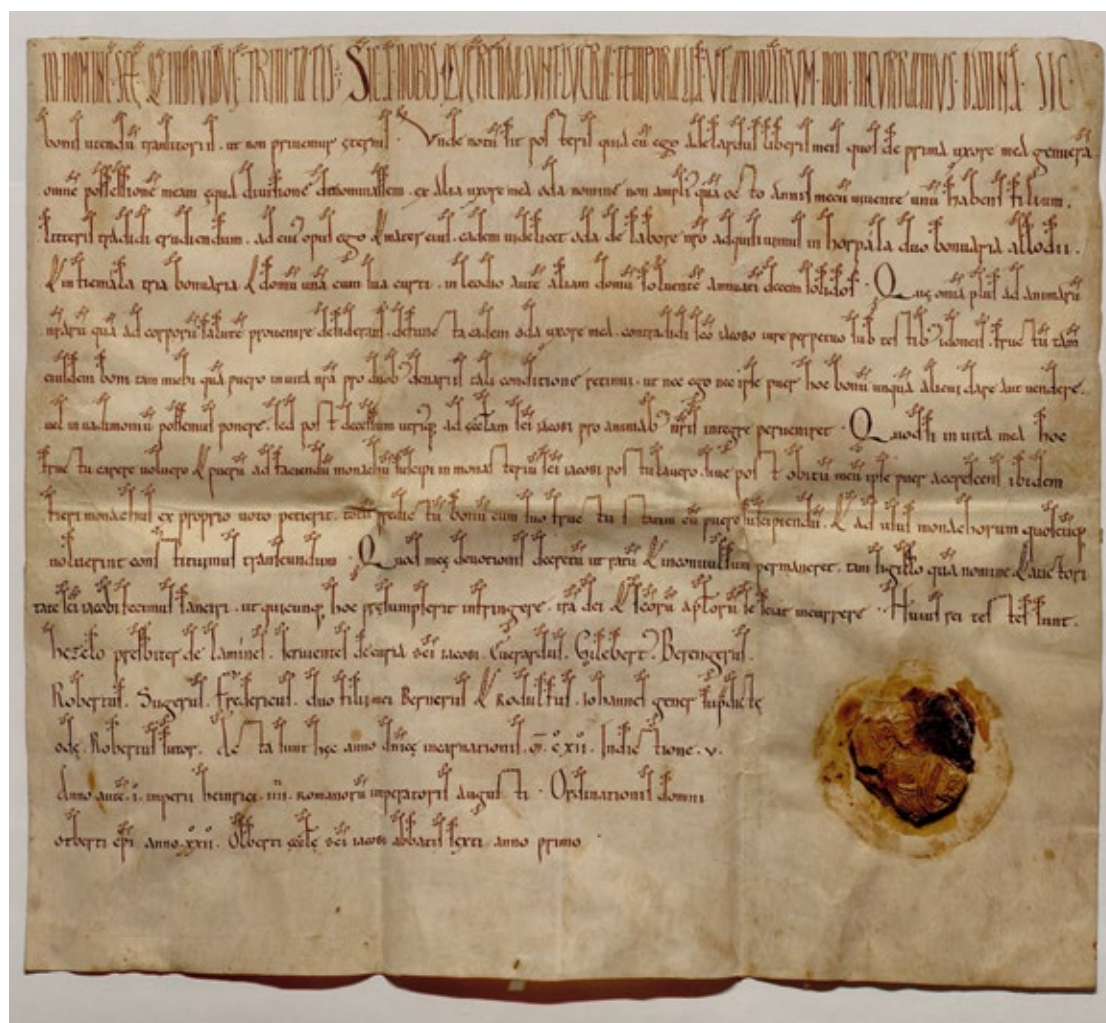 IN NOMINE SCĘ & INDIVIDUĘ TRINITATIS. SIC A NOBIS QUERENDA SUNT LUCRA TEMPORALIA, UT ANIMARUM NON INCURRAMUS DAMNA. SIC
bonis utendū transitoriis. ut non privemur ęternis. Unde notū sit posteris quia cū ego adelardus liberis meis quos de prima uxore mea genuerā
omnē possessionē meam ęqua divisione denominassem. ex alia uxore mea oda nomine non ampli' quā octo annis mecū vivente unū habens filium.
litteris tradidi erudiendum. ad cui' opus ego & mater eius. eadem videlicet oda de labore nr̄o adquisivimus in horpala duo bonuaria allodii.
& in temala tria bonuaria & domū unā cum sua curti. in leodio ante aliam domū solventē annuatī decem solidos. Quę om̄ia plus ad animarū
nr̄arū quā ad corporū salutē provenire desiderans. defuncta eadem oda uxore mea. contradidi sc̄o iacobo iure perpetuo sub testib' idoneis. fructū tam
eiusdem boni tam michi quā puero in vita nr̄a pro duob' denariis tali conditione retinui. ut nec ego nec ipse puer hoc bonū unquā alicui dare aut vendere.
vel in vadimoniū possemus ponere. sed post decessum utriq; ad ęcclam sc̄i iacobi pro animab' nr̄is integre perveniret. Quod si in vita mea hoc
fructu carere voluero & puerū ad faciendū monachū suscipi in monasteriū sc̄i iacobi postulavero. sive post obitū meū ipse puer accrescens ibidem
fieri monachus ex proprio voto petierit. totū predictū bonū cum suo fructu statim cū puero suscipiendū. & ad usus monachorum quoscūq;
voluerint constituimus transeundum. Quod meę devotionis decretū ut ratū & inconvulsum permaneret. tam sigillo quā nomine & auctori
tate sc̄i iacobi fecimus sanciri. ut quicunq; hoc pręsumpserit infringere. irā dei & sc̄orū apl̄orū se sciat incurrere. Huius rei testes sunt.
hezelo presbiter de laminės. servientes de curia sc̄i iacobi. Everardus. Gislebert'. Berengerus.
Robertus. Sugerus. fredericus. duo filii mei Bernerus & Rodulfus. iohannes gener sup̄dictę
odę. Robertus sutor. Acta sunt hęc anno dn̄icę incarnationis. M. C. XII. Indictione. v.
Anno aute. i. imperii heinrici. IIII. romanorū imperatoris augusti. Ordinationis domni
otberti ep̄i. anno. xxii. Olberti ęccl̄ę sc̄i iacobi abbatis sexti anno primo.